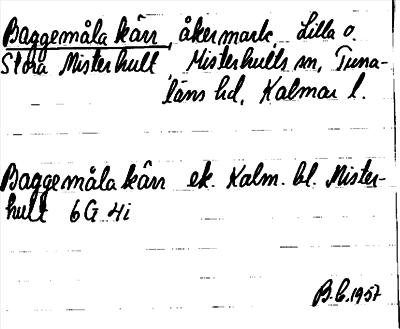 Baggemåla kärr, åkermark, Lilla o.
Stora Misterhult, Misterhults sn, Tuna-
läns hd, Kalmar l.
Baggemåla kärr ek. Kalm. bl. Mister-
hult 6G 4i
B.E. 1957